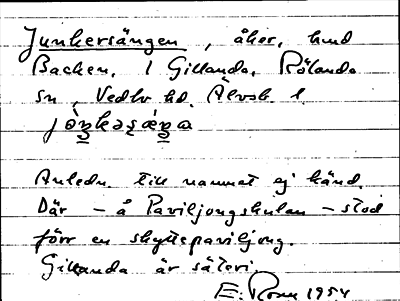 Junkersängen, åker, hmd
Backen, 1 Gillanda, Rölanda
sn, Vedbo hd. Älvsb. l.
Anledn. till namnet ej känd.
Där – å Paviljongskulan – stod
förr en skyttepaviljong.
Gillanda är säteri.
E. Ronn 1954